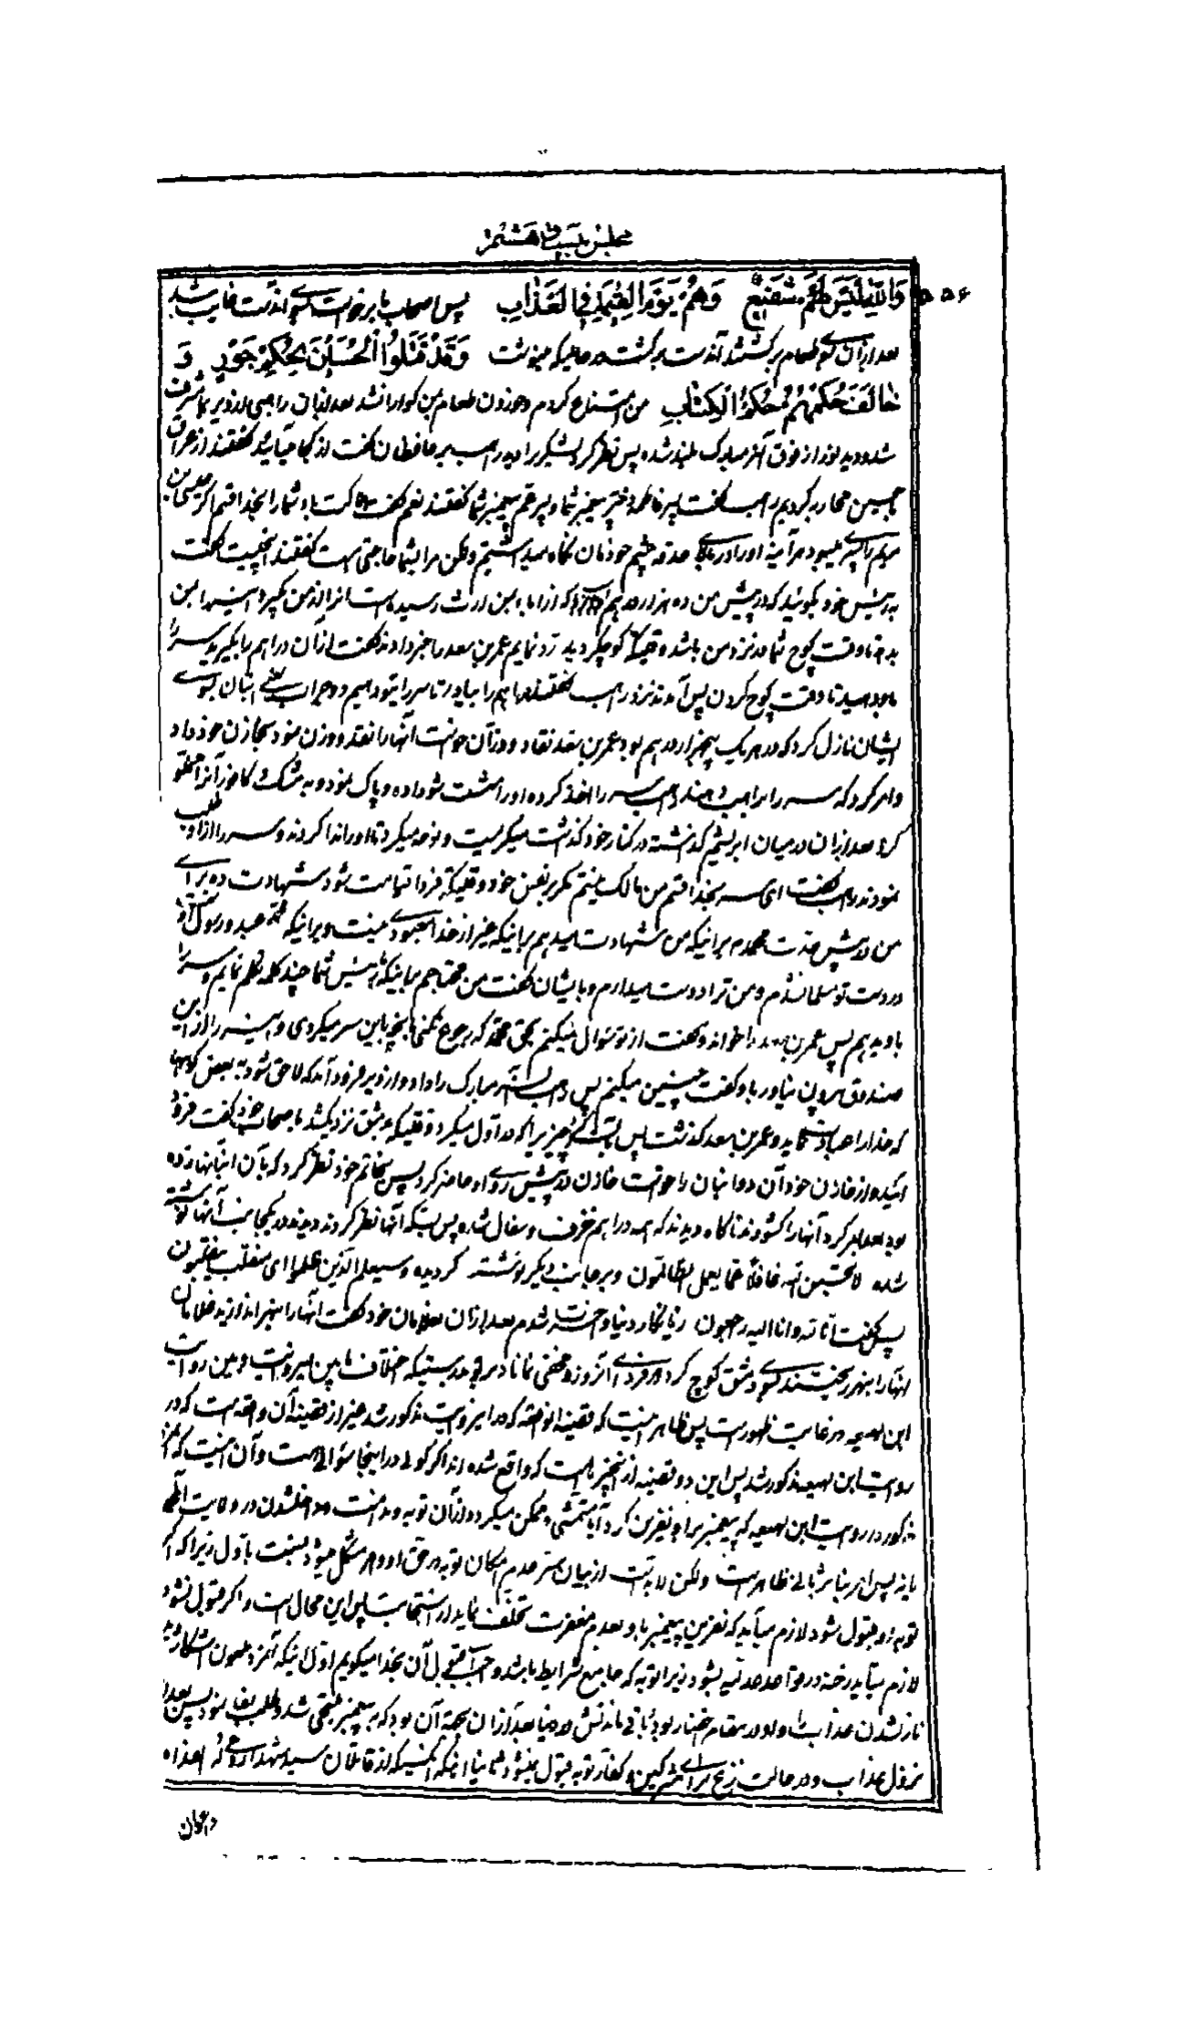 مجلس بیست و هشتم
۵۵۶
وَاللّٰهِ لَیْسَ لَهُمْ شَفِیعٌ وَهُمْ یَوْمَ الْقِیٰمَةِ فِی الْعَذَابِ پس اصحاب ما برخواستند آندست غایب شد
بعد ازان طعام برگشتند آندست برگشت در حالیکه مینوشت وَقَدْ قَتَلُوا الْحُسَیْنَ بِحُکْمِ جَوْرٍ وَ
خَالَفَ حُکْمُهُمْ حُکْمَ الْکِتَابِ من امتناع کردم و خوردن طعام بمن گوارا نشد بعد ازان راهبی از دیر مشرف
شد و دید نور از فوق آنسر مبارک بلند شده پس نظر کرد لشکر را دید راهب بر محافظان گفت از کجا میآئید گفتند از عراق
با حسین محاربه کردیم راهب گفت پسر فاطمه دختر پیغمبر شما و پسر عم پیغمبر شما گفتند نعم گفت هلاکت باد شما را بخدا قسم اگر عیسی بن
مریم را پسری میبود هرآینه او را در بالای حدقه چشم خودمان نگاه میداشتیم ولکن مرا بشما حاجتی هست گفتند آن چیست گفت
به رئیس خود بگوئید که در پیش من ده هزار درهم که از آباء بمن ارث رسیده است آنرا از من بگیرد و این سر را بمن
بدهد تا وقت کوچ شما در نزد من باشد و وقتیکه کوچ کردید رد نمایم عمر بن سعد را خبر دادند گفت از آن دراهم را بگیرید سر را
باو بدهید تا وقت کوچ کردن پس آمدند نزد راهب گفتند دراهم را بیاور تا سر را بتو دهیم دو جراب بسوی
ایشان نازل کرد که در هر یک پنجهزار درهم بود عمر بن سعد نقاد و وزان خواست آنها را نقد و وزن نمود بخازن خود داد
و امر کرد که سر را براهب دهند راهب سر را اخذ کرده او را شست شو داده و پاک نمود و به مشک و کافور آنرا مملو
کرد بعد ازان در میان ابریشم گذاشته در کنار خود گذاشت میگریست و نوحه میکرد تا او را ندا کردند و سر را از او طلب
نمودند راهب گفت ای سر بخدا قسم من مالک نیستم مگر بنفس خود وقتیکه فردا قیامت شود شهادت ده برای
من در پیش جدت محمد من شهادت میدهم براینکه غیر از خدا معبودی نیست و براینکه محمد عبد و رسول
در دست تو مسلمان شدم و من ترا دوست میدارم و بایشان گفت من محتاجم براینکه با رئیس شما چند کلمه تکلم نمایم و سر را
باو بدهم پس عمر بن سعد را خواند و گفت از تو سؤال میکنم بحق محمد که رجوع نکنی بآنچه باین سر میکردی و این سر را از این
صندوق بیرون نیاور باو گفت چنین میکنم پس راهب سر مبارک را داد و از دیر فرود آمد که لاحق شود به بعض کوهها
که خدا را عبادت نماید و عمر بن سعد گذشت پس چیزیرا که در اول میکرد وقتیکه بدمشق نزدیک شد باصحاب خود گفت فرود
آئید و از خازن خود آن دو انبان را خواست خازن در پیش روی او حاضر کرد پس بخاتم خود نظر کرد که بآن انبانها زده
بود بعد امر کرد آنها را گشودند ناگاه دیدند که همه دراهم خزف و سفال شده پس بسکه آنها نظر کردند دیدند در یکجانب آنها نوشته
شده لا تحسبن الله غافلا عما یعمل الظالمون و بر جانب دیگر نوشته گردیده و سیعلم الذین ظلموا ای منقلب ینقلبون
پس گفت انا لله و انا الیه راجعون زیانکار دنیا و آخرت شدم بعد ازان بغلامان خود گفت آنها را بنهر اندازید غلامان
آنها را بنهر ریختند بسوی دمشق کوچ کرد در فردای آنروز و مخفی نماناد بدرستیکه اختلاف مابین این روایت و بین روایت
ابن لهیعه در غایت ظهور است پس ظاهر اینست که قضیه واقعه که در این روایت مذکور شد غیر از قضیه آن واقعه است که در
روایت ابن لهیعه مذکور شد پس این دو قضیه از چیزهائیست که واقع شده اند اگر گوئی در اینجا سؤالی هست و آن اینست که
مذکور در روایت ابن لهیعه که پیغمبر بر او نفرین کرد آیا متمشی و ممکن میگردد از آن توبه و ندامت و داخلشدن در ولایت
یا نه پس امر بنا بر ثانی ظاهر است ولکن لابد است از بیان سر عدم امکان توبه در حق او و امر مشکل میشود بنسبت باول زیرا که اگر
توبه او قبول شود لازم میآید که نفرین پیغمبر باو بعدم مغفرت تخلف نماید از استجابت پس این محال است و اگر قبول نشود
لازم میآید رخنه در قواعد عدلیه بشود زیرا توبه که جامع شرایط باشد واجب است قبول آن بخدا میگویم اولا اینکه
نازلشدن عذاب را در مقام اختیار بود باقی ماندنش در دنیا بعد ازان بجهة آن بود که به پیغمبر ملتجی شد و طلب بقا نمود پس بعد از
نزول عذاب و در حالت نزع برای مشرکین و کفار توبه قبول نمیشود ثانیا اینکه آنکسیکه از قاتلان سید شهدا و اعداء
و اعوان